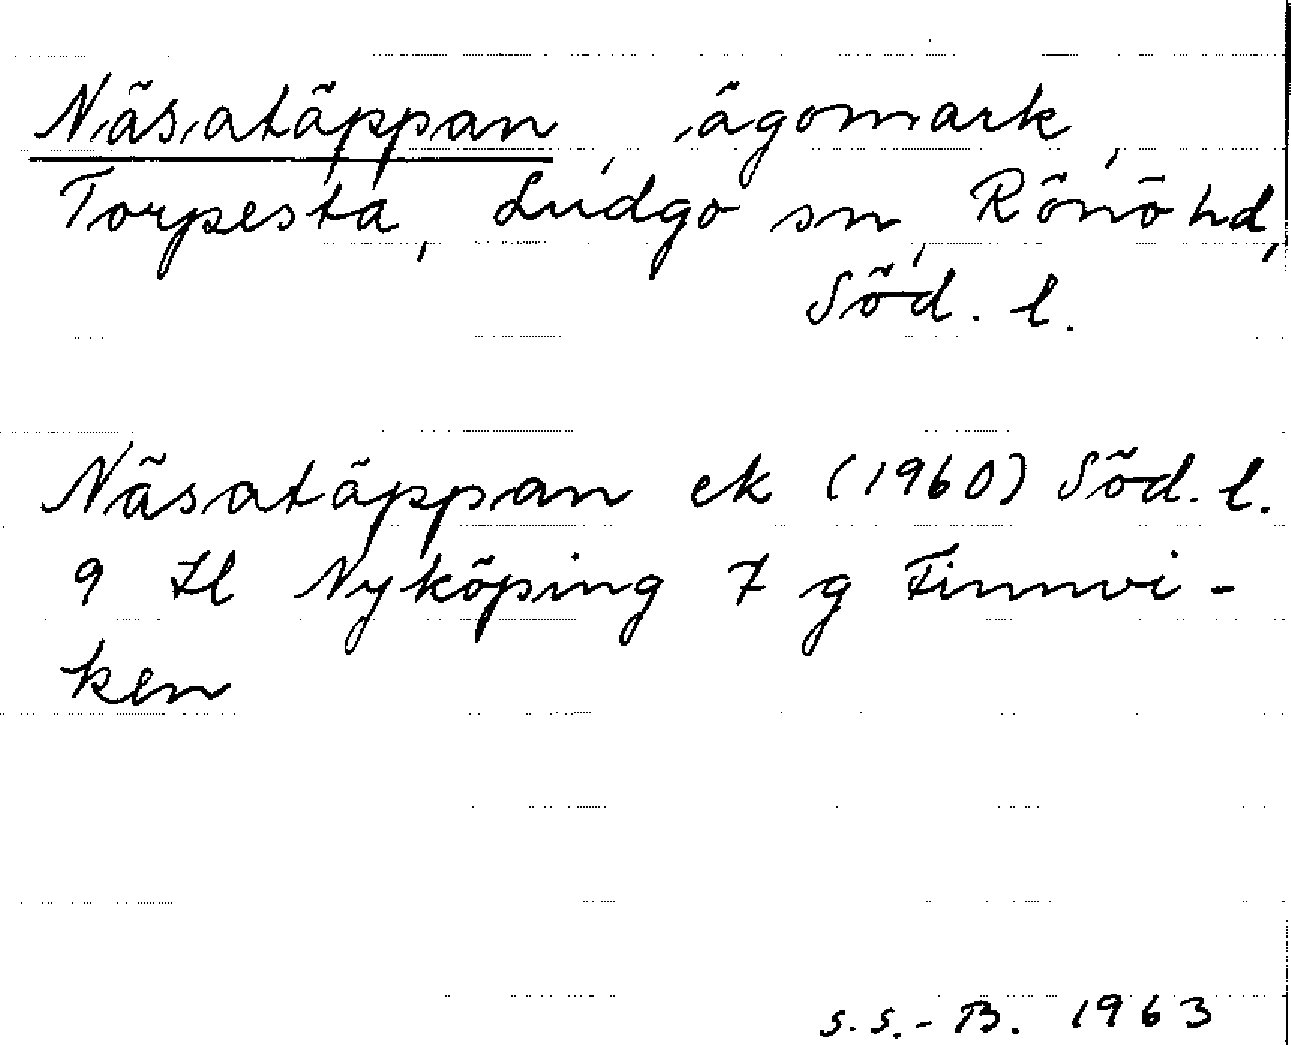 Näsatäppan, ägomark,
Torpesta, Ludgo sn, Rönö hd,
Söd. l.
Näsatäppan ek (1960) Söd. l.
9 Il Nyköping 7 g Finnvi-
ken
S.S.-B. 1963